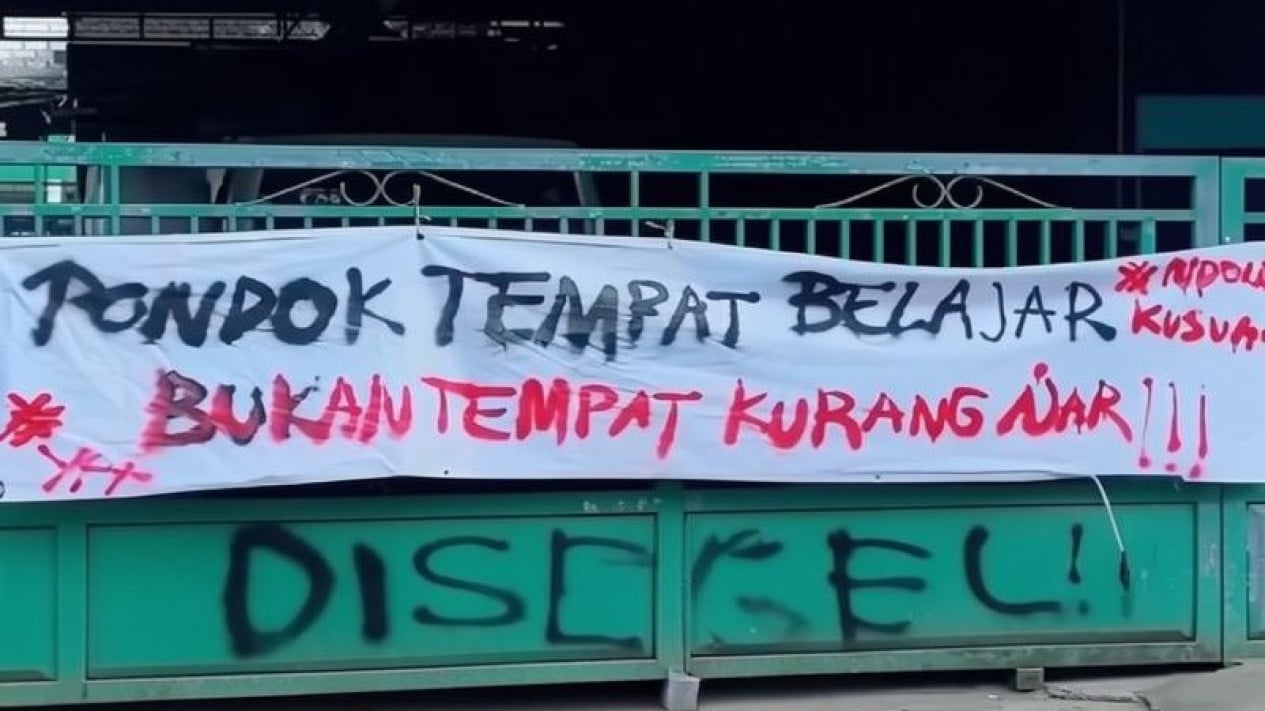 PONDOK TEMPAT BELAJAR
BUKAN TEMPAT KURANG AJAR!!!
DISEGEL!!